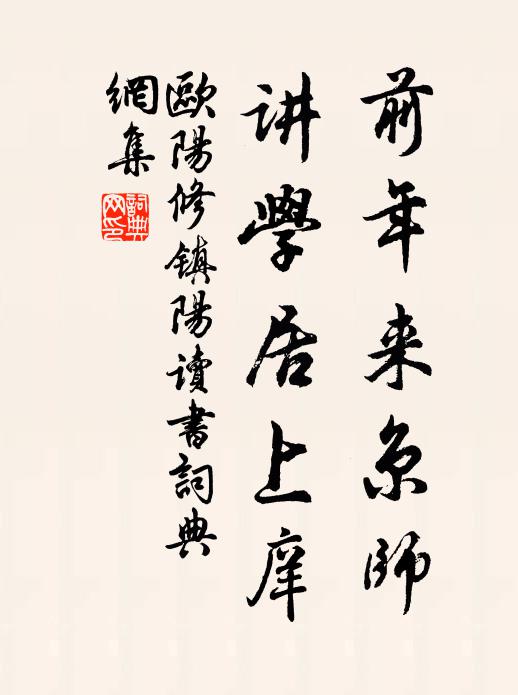 前年来京師
讲學居上庠
歐陽修鎮陽讀書詞典
網集
詞典
网印